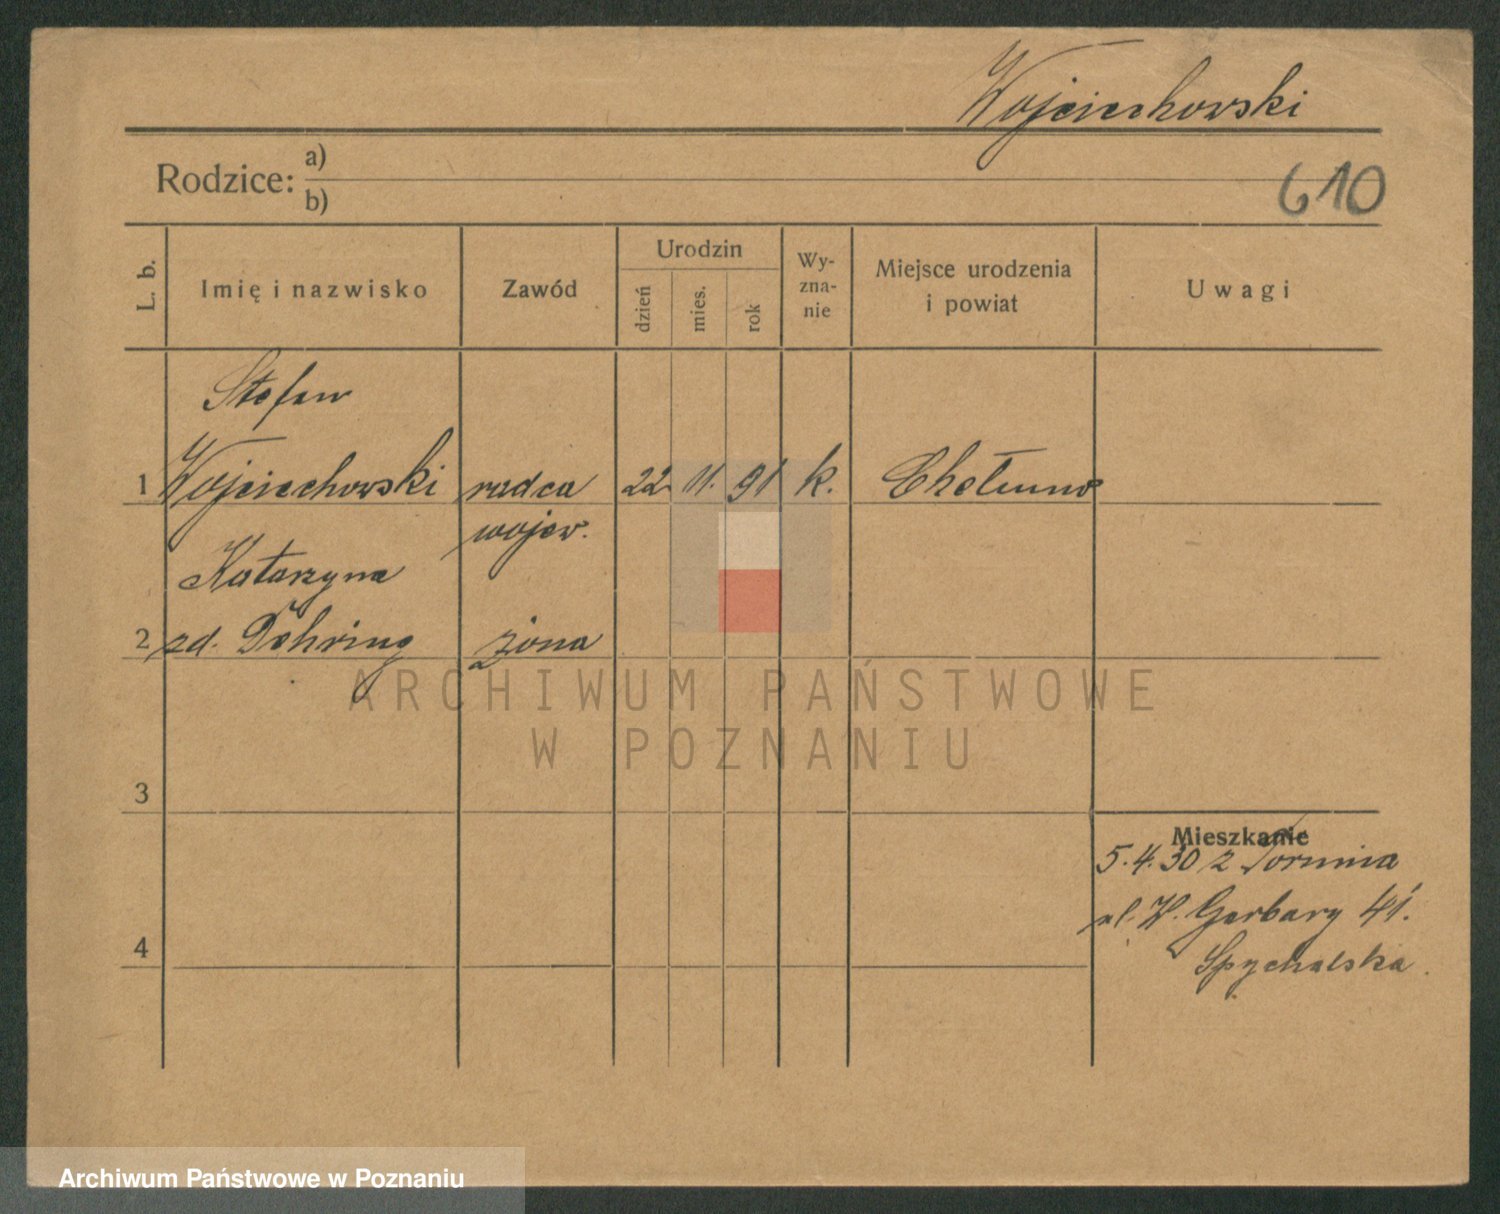 Wojciechowski
Rodzice: a)
b)
610
L. b.
Imię i nazwisko
Zawód
Urodzin
dzień
mies.
rok
Wy-
zna-
nie
Miejsce urodzenia
i powiat
Uwagi
Stefan
1 Wojciechowski radca 22 11. 91 k. Chełmno
wojew.
Katarzyna
2 zd. Döhring żona
ARCHIWUM PAŃSTWOWE
W POZNANIU
3
Mieszkanie
5.4.30 z Torunia
ul. W. Garbary 41.
4
Spychalska
Archiwum Państwowe w Poznaniu